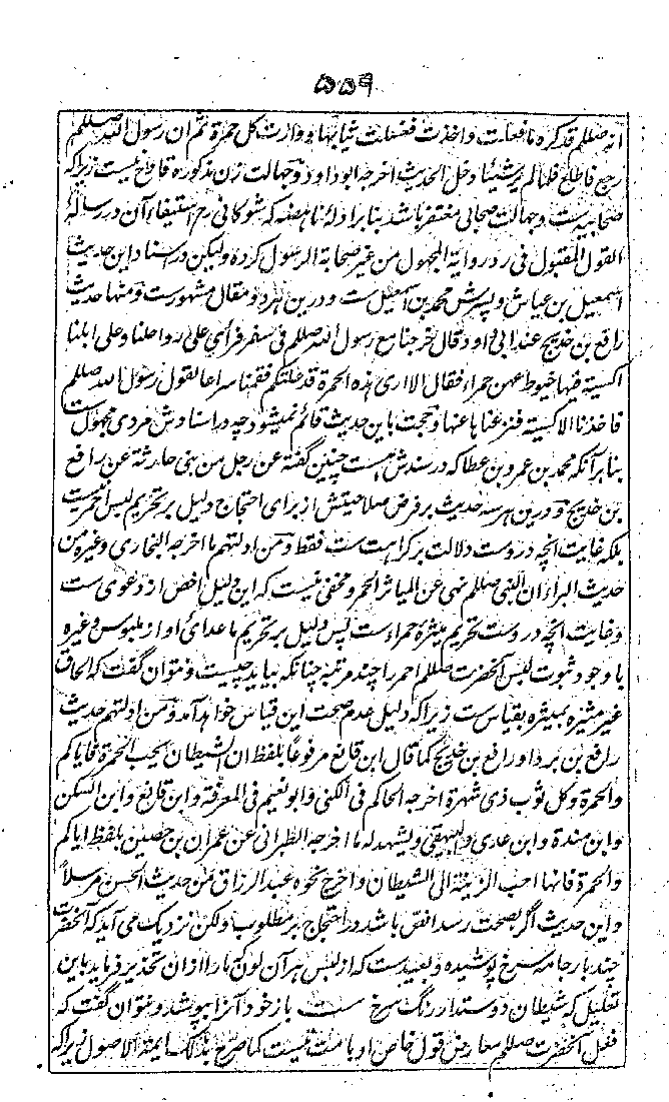 ۵۵۹
انه صللم قد كره ما فعلت و اخذت فغسلت ثيابها و وارت كل حمرة ثم ان رسول الله صللم
رجع فاطلع فلما لم ير شيئا دخل الحديث اخرجه ابو داود و جهالت زن مذكوره قادح نيست زيراكه
صحابيه است و جهالت صحابى مغتفر باشد بنا بر ادلهٔ ناهضه كه شوكانى رح استيفاء آن در رسالهٔ
القول المقبول فى رد رواية المجهول من غير صحابة الرسول كرده وليكن در اسناد اين حديث
اسمعيل بن عياش و پسرش محمد بن اسمعيل ست و درين هر دو مقال مشهورست و منها حديث
رافع بن خديج عند ابى داود قال خرجنا مع رسول الله صللم فى سفر فرأى على رواحلنا و على ابلنا
اكسية فيها خيوط عهن حمراء فقال الا ارى هذه الحمرة قد علتكم فقمنا سراعا لقول رسول الله صللم
فاخذنا الاكسية فنزعناها عنها و حجت باين حديث قائم نميشود چه در اسنادش مردى مجهول ست
بنا بر آنكه محمد بن عمرو بن عطا كه در سندش هست چنين گفته عن رجل من بنى حارثة عن رافع
بن خديج و درين هر سه حديث بر فرض صلاحيتش از براى احتجاج دليل بر تحريم لبس احمر نيست
بلكه غايت انچه دروست دلالت بر كراهت ست فقط و من ادلتهم ما اخرجه البخارى و غيره من
حديث البراء ان النبى صللم نهى عن المياثر الحمر و مخفى نيست كه اين دليل اخص از دعوى ست
و غايت انچه دروست تحريم ميثرهٔ حمراء ست پس دليل بر تحريم ماعداى او از ملبوس و غيره
با وجود ثبوت لبس آنحضرت صللم احمر را چند مرتبه چنانكه بيايد چيست و نتوان گفت كه الحاق
غير ميثره بميثره بقياس ست زيراكه دليل عدم صحت اين قياس خواهد آمد و من ادلتهم حديث
رافع بن برد او رافع بن خديج كما قال ابن قانع مرفوعًا بلفظ ان الشيطان يحب الحمرة فاياكم
والحمرة و كل ثوب ذى شهرة اخرجه الحاكم فى الكنى و ابو نعيم فى المعرفة و ابن قانع و ابن السكن
و ابن مندة و ابن عدى و البيهقى و يشهد له ما اخرجه الطبرانى عن عمران بن حصين بلفظ اياكم
والحمرة فانها احب الزينة الى الشيطان و اخرج نحوه عبد الرزاق من حديث الحسن مرسلًا
و اين حديث اگر بصحت رسد انص باشد در احتجاج بر مطلوب ولكن نزديك مى آيد كه آنحضرت
چند بار جامهٔ سرخ پوشيده و بعيدست كه از لبس هر آن لون كه ما را ازان تحذير فرمايد باين
تعليل كه شيطان دوستدار رنگ سرخ ست باز خود آنرا بپوشد و نتوان گفت كه
فعل آنحضرت صللم معارض قول خاص او بامت نيست كما صرح بذلك ايمة الاصول زيراكه